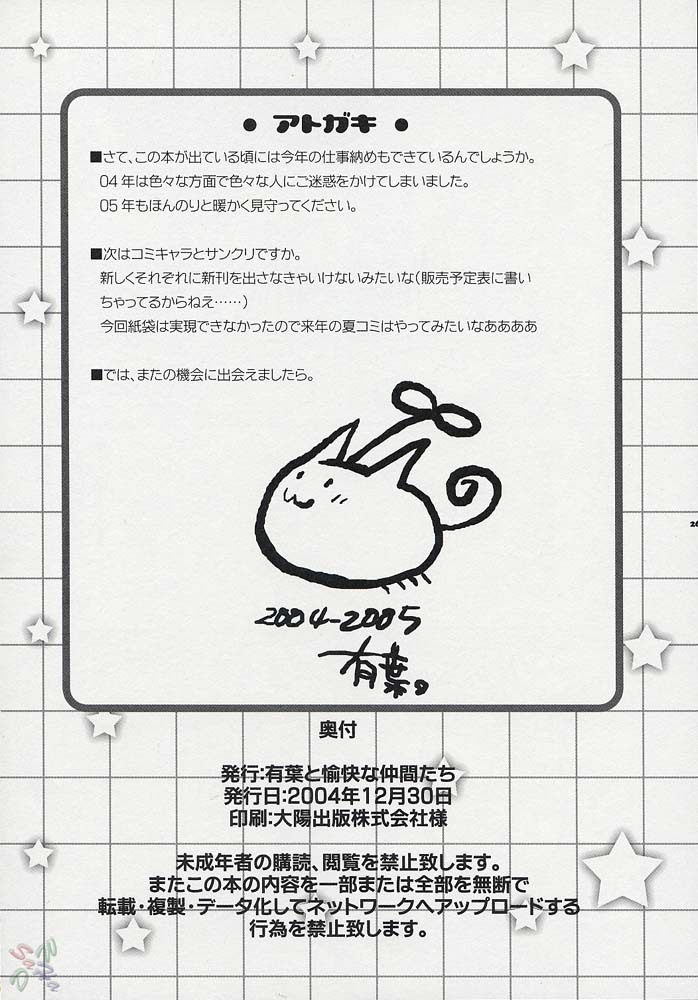 ● アトガキ ●
■さて、この本が出ている頃には今年の仕事納めもできているんでしょうか。
04年は色々な方面で色々な人にご迷惑をかけてしまいました。
05年もほんのりと暖かく見守ってください。
■次はコミキャラとサンクリですか。
新しくそれぞれに新刊を出さなきゃいけないみたいな(販売予定表に書い
ちゃってるからねえ……)
今回紙袋は実現できなかったので来年の夏コミはやってみたいなあああああ
■では、またの機会に出会えましたら。
2004-2005
有葉。
26
奥付
発行:有葉と愉快な仲間たち
発行日:2004年12月30日
印刷:大陽出版株式会社様
未成年者の購読、閲覧を禁止致します。
またこの本の内容を一部または全部を無断で
転載・複製・データ化してネットワークへアップロードする
行為を禁止致します。